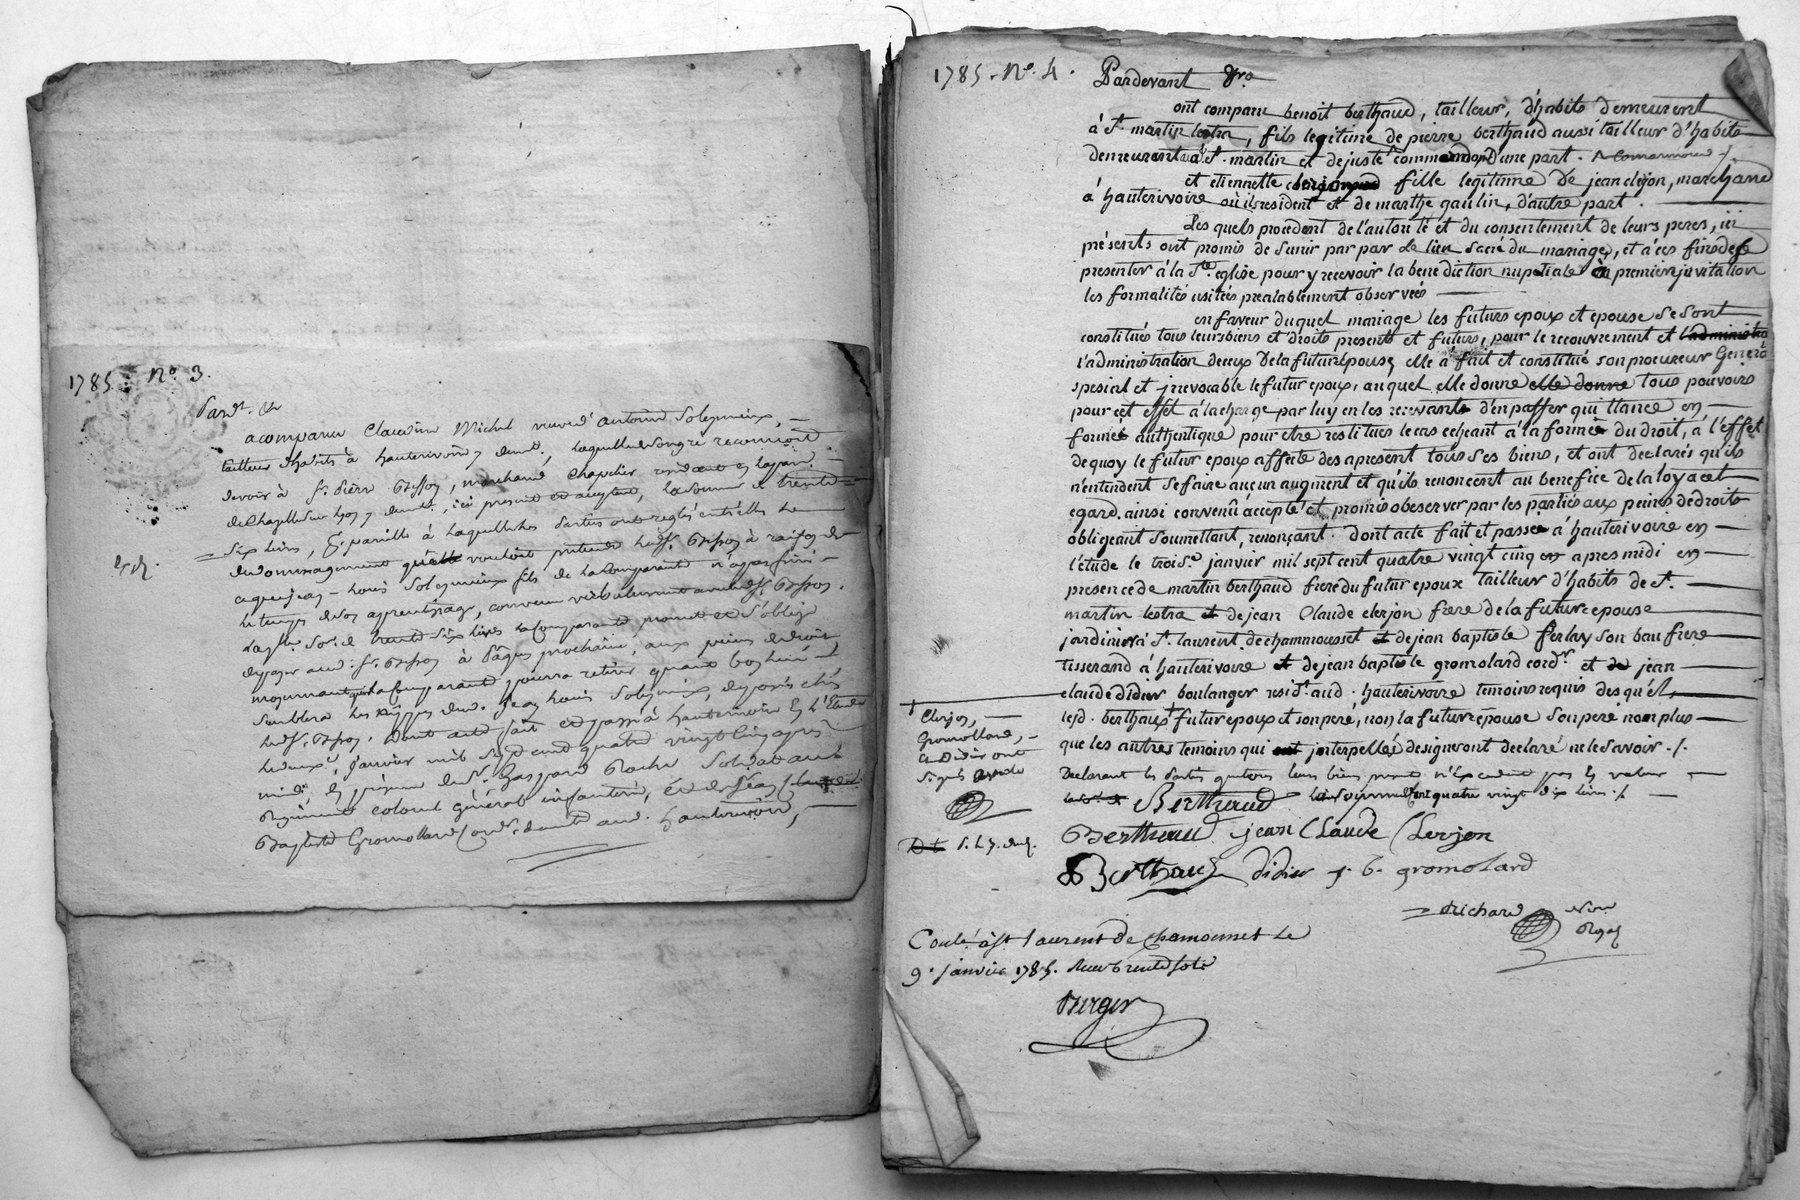 1785. No. 3.
Pardt. &
a comparu Claudine Michel veuve d'antoine Soleymieux,
tailleur d'habits à hauterivoire y demt., laquelle de son gré reconnoit
devoir à Sr. pierre, marchand Chapelier résidant en la parr.
de Chapelle sur, ici present et acceptant, la somme de trente
six livres, à laquelle les parties ont reglés entr'elles le
dedommagement qu'elle vouloit pretendre led. Sr. à raison de
ce que jean-louis Soleymieux fils de la comparante n'a pas fini
le tems de son aprentissage, convenu verbalement avec led. Sr.
laqlle. so. de trente six livres la comparante promet et s'oblige
de payer aud. Sr. à Pâques prochaine, aux peines de droit
moyennant quoi la comparante pourra retirer quand bon lui
semblera les nippes dud. jean louis Soleymieux, deposés chés
led. Sr. Dont acte fait et passé à hauterivoire en l'Etude
le deuxe. janvier mil sept cent quatre vingt cinq après
midi, en présence de Sr. Gaspard Roche Soldat au
Régiment colonel général infanterie, et de Jean
Baptiste Gromollard cordr. demt. aud. hauterivoire,
1785. No. 4.
Pardevant &ra
ont comparu benoit berthaud, tailleur, d'habits demeurent
à St. martin lestra, fils legitime de pierre berthaud aussi tailleur d'habits
demeurant aud. St. martin et de juste commandop d'une part.
et etiennette clerjon fille legitime de jean clerjon, marchand
à hauterivoire où ils resident et de marthe gaulin, d'autre part.
Les quels procedent de l'autorité et du consentement de leurs peres, ici
présents ont promis de s'unir par par le lien sacré du mariage, et à ces fins de se
presenter à la Ste. eglise pour y recevoir la benediction nuptiale à la premiere invitation
les formalités usitées prealablement observées
en faveur duquel mariage les futurs epoux et epouse se sont
constitués tous leurs biens et droits presents et futurs, pour le recouvrement et l'administra
l'administration de ceux de la future epouse, elle a fait et constitué son procureur General
spesial et irrevocable le futur epoux, auquel elle donne elle donne tous pouvoirs
pour cet effet à la charge par luy en les recevants d'en passer quittance en
formée authentique pour etre restitués le cas echeant à la forme du droit, à l'effet
de quoy le futur epoux affecte des apresent tous ses biens, et ont declarés qu'ils
n'entendent se faire aucun augment et qu'ils renoncent au benefice de la loy a cet
egard. ainsi convenû accepté et promis observer par les parties aux peines de droits
obligeant soumettant, renonçant. dont acte fait et passé à hauterivoire en
l'étude le troise. janvier mil sept cent quatre vingt cinq en apres midi en
presence de martin berthaud frere du futur epoux tailleur d'habits de St.
martin lestra et de jean Claude clerjon frere de la future epouse
jardinier à St. laurent de chammousset et de jean baptiste ferlay son beaufrere
tisserand à hauterivoire et de jean baptiste gromolard cordr. et de jean
claude didier boulanger residt. aud. hauterivoire temoins requis desquels
lesd. berthaux + futur epoux et son pere, non la future epouse son pere non plus
que les autres temoins qui ont interpellés de signer ont declaré ne le savoir ./.
+ Clerjon,
Gromollard,
et Didier ont
signés avec
Declarant les parties que tous leurs biens presents n'excedent pas la valeur
la somme cent quatre vingt dix livres ./.
Berthaud
Berthaud jean Claude Clerjon
Berthaud didier j. b. gromolard
Richard Nore
Royal
Conlé. à St Laurent de Chamousset le
9. janvier 1785. Reçu trente sols
Berger